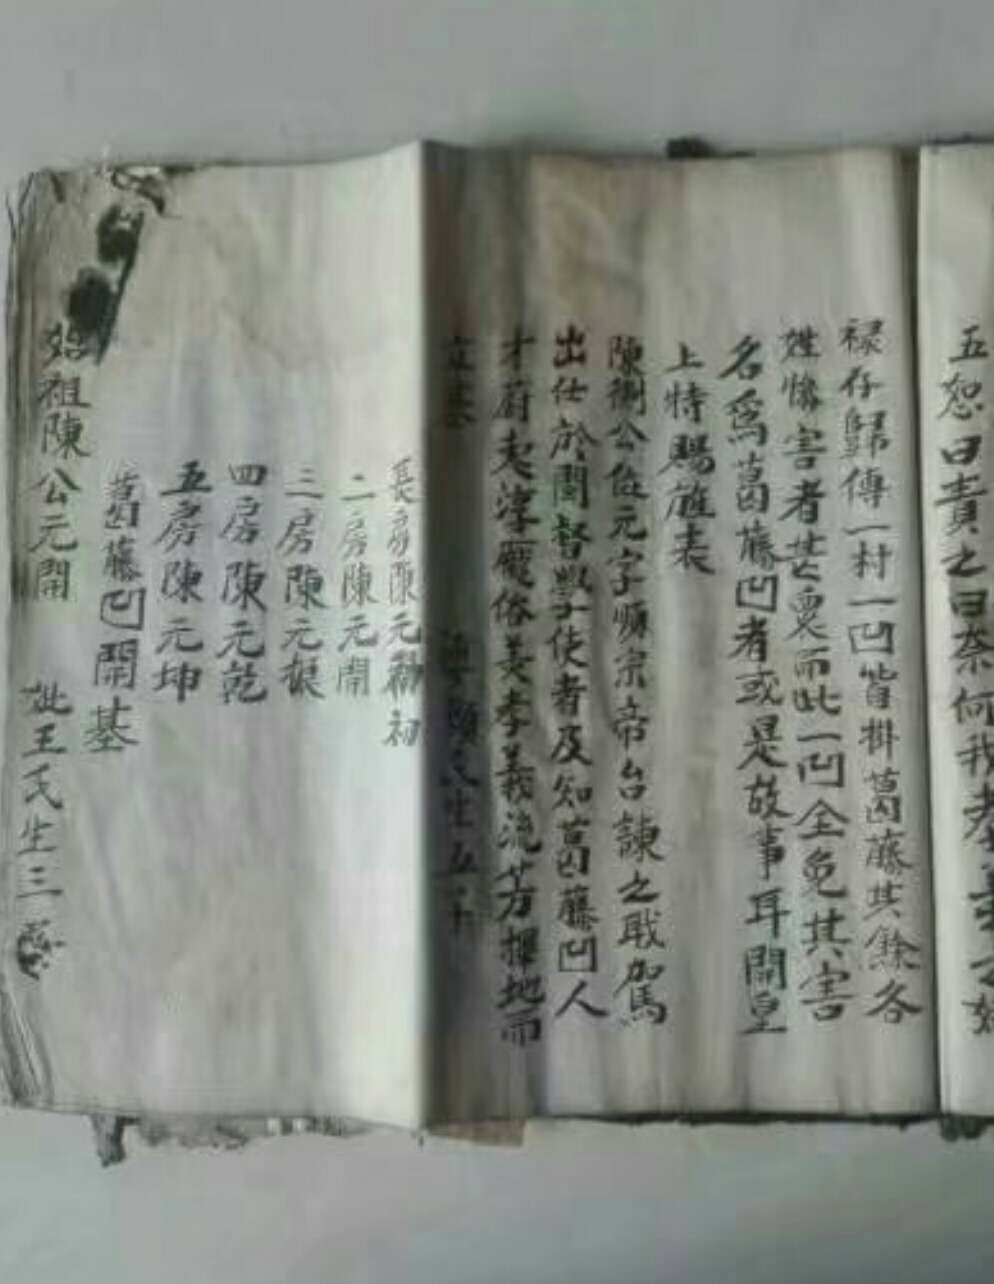 五恕曰責之曰奈何我孝義之
祿存歸傳一村一凹皆掛葛藤其餘各
姓慘害者甚衆而此一凹全免其害
名爲葛藤凹者或是故事耳開皇
上特賜旌表
陳衡公位元字順宗帝台諫之戢駕
出仕於閩督學使者及知葛藤凹人
才蔚起淳龐俗美孝義流芳擇地而
立基 顏氏生五子
長房陳元勷初
二房陳元開
三房陳元振
四房陳元乾
五房陳元坤
葛藤凹開基
始祖陳公元開 妣王氏生三